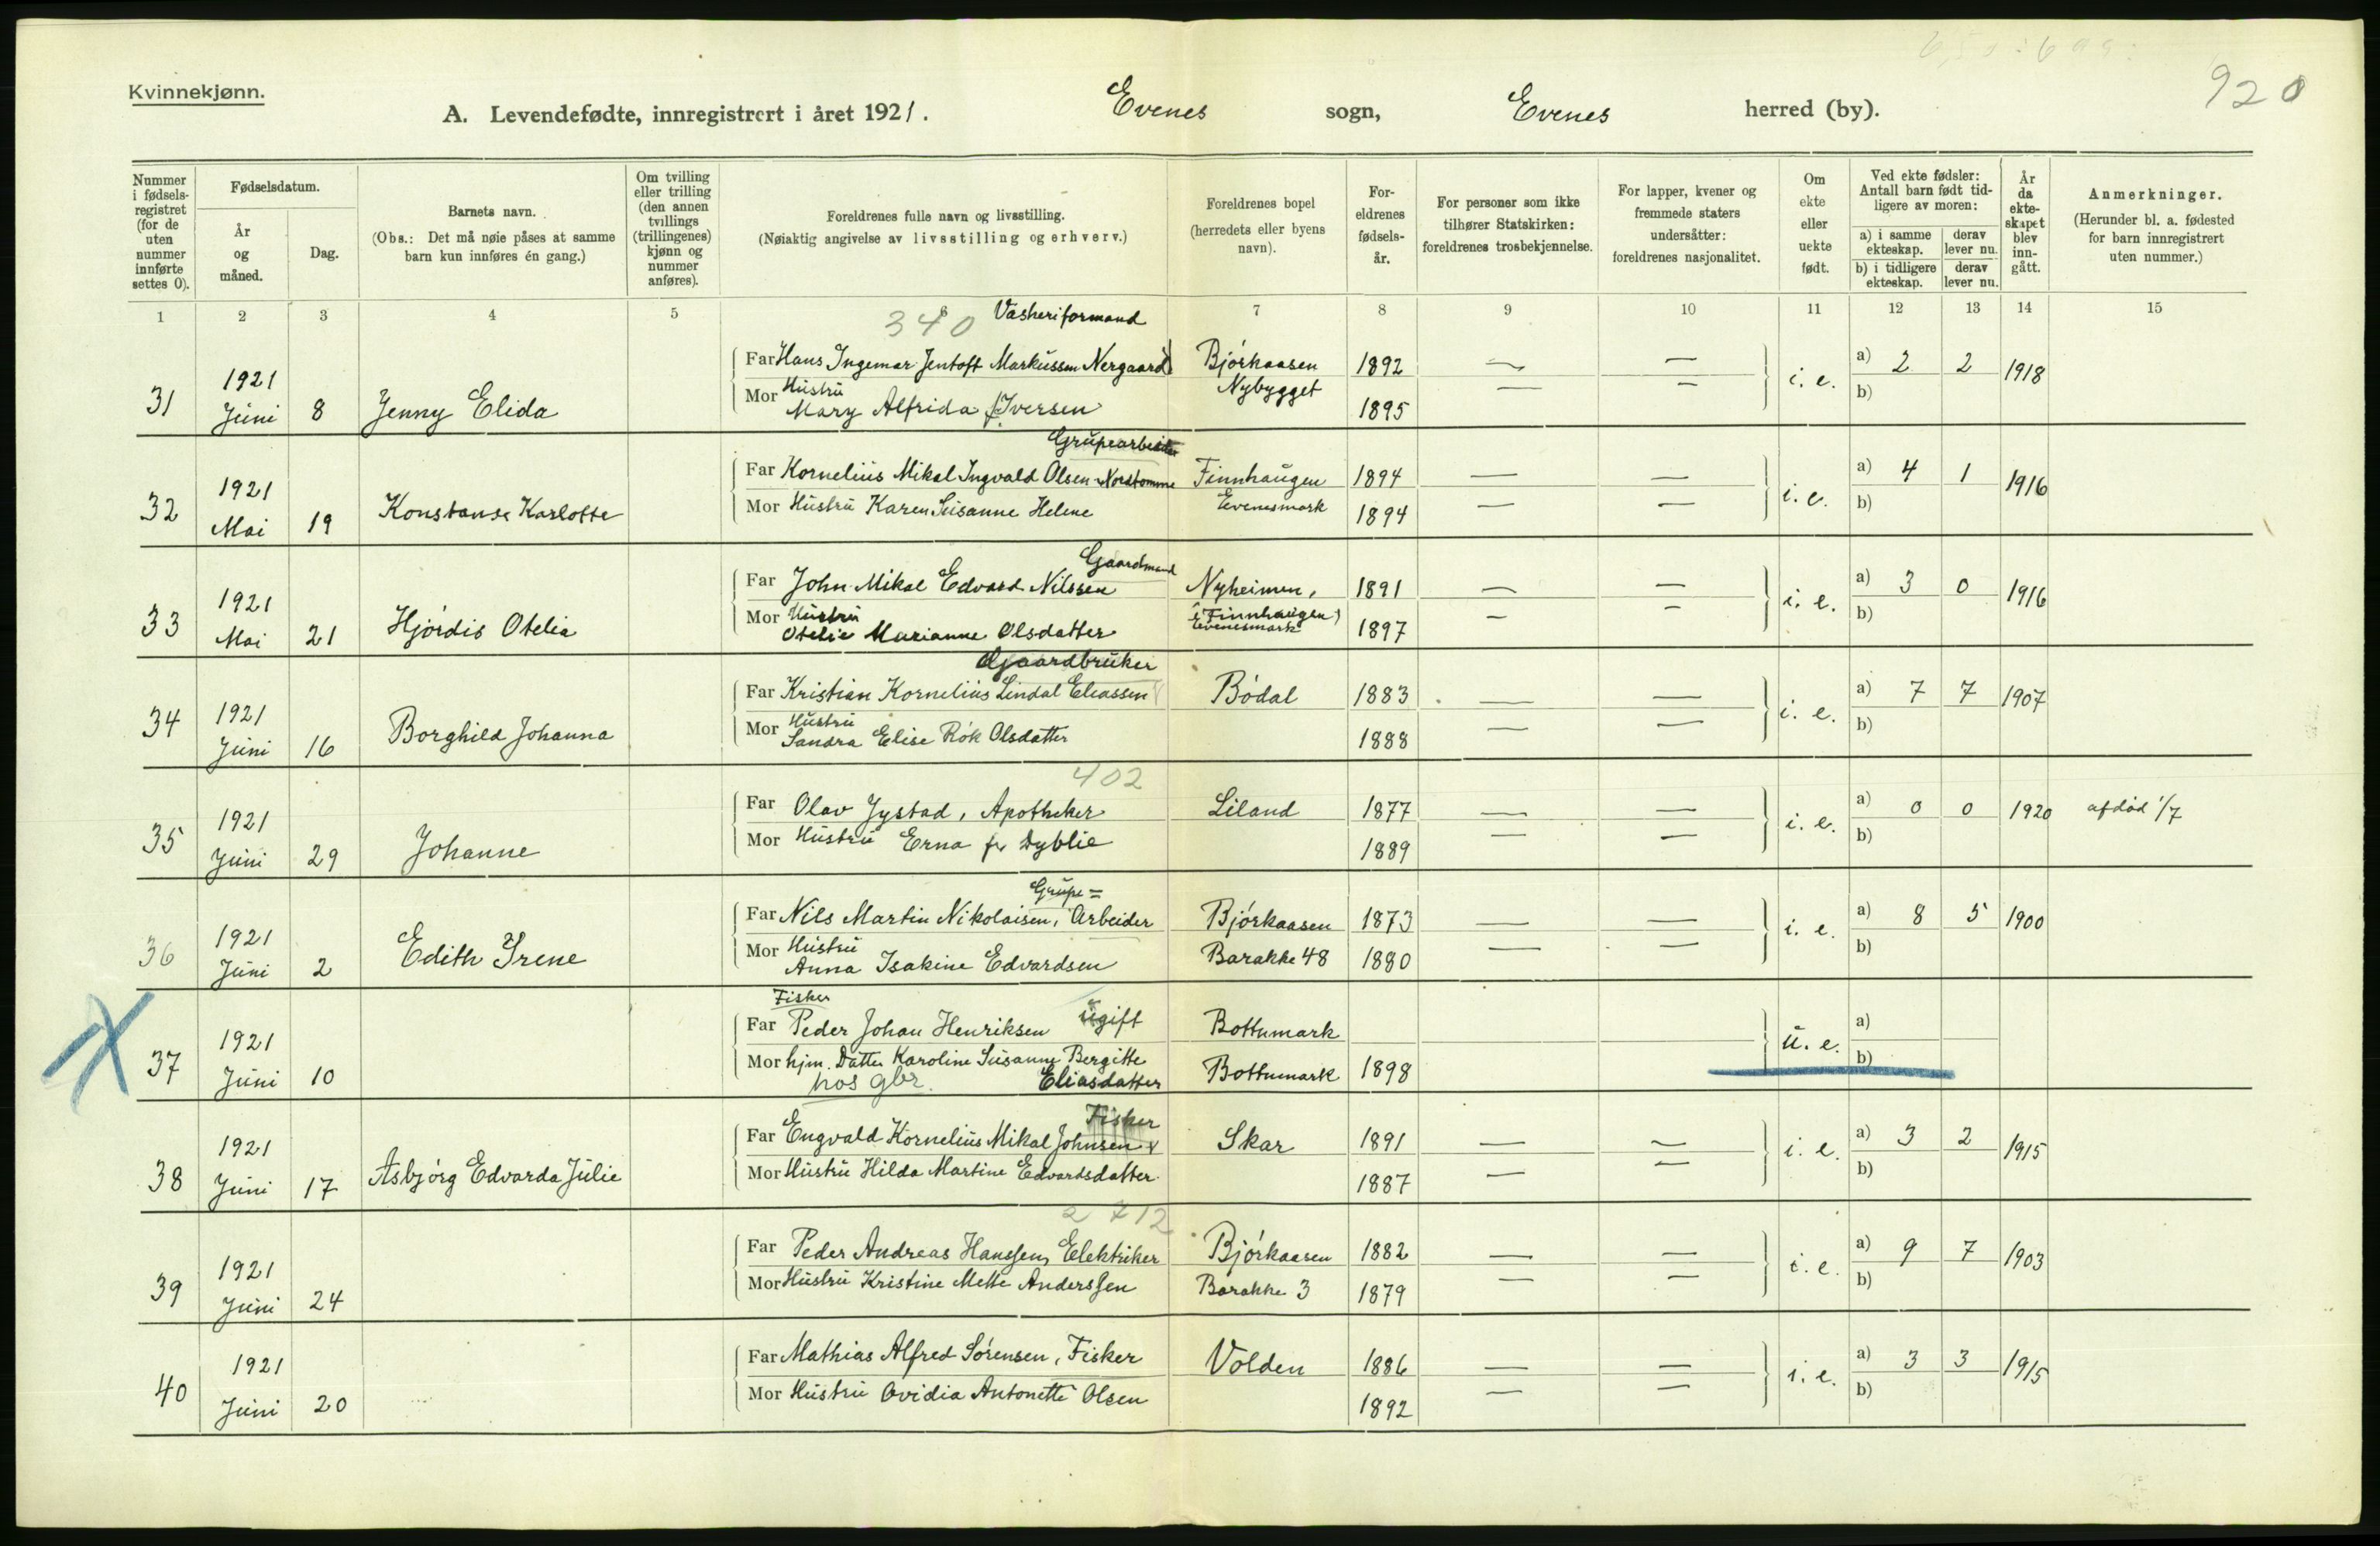 Kvinnekjønn.
920
A. Levendefødte, innregistrert i året 1921. Evenes sogn, Evenes herred (by).
Nummer i fødselsregistret (for de uten nummer innførte settes 0).
Fødselsdatum.
År og måned.
Dag.
Barnets navn.
(Obs.: Det må nøie påses at samme barn kun innføres én gang.)
Om tvilling eller trilling (den annen tvillings (trillingenes) kjønn og nummer anføres).
Foreldrenes fulle navn og livsstilling.
(Nøiaktig angivelse av livsstilling og erhverv.)
Foreldrenes bopel (herredets eller byens navn).
Foreldrenes fødselsår.
For personer som ikke tilhører Statskirken: foreldrenes trosbekjennelse.
For lapper, kvener og fremmede staters undersåtter: foreldrenes nasjonalitet.
Om ekte eller uekte født.
Ved ekte fødsler: Antall barn født tidligere av moren:
a) i samme ekteskap. derav lever nu.
b) i tidligere ekteskap. derav lever nu.
År da ekteskapet blev inngått.
Anmerkninger.
(Herunder bl. a. fødested for barn innregistrert uten nummer.)
1 2 3 4 5 6 7 8 9 10 11 12 13 14 15
340 Vasheriformand
Far Hans Ingemar Jentoft Markussen Nergaard Bjórkaasen 1892 — — a) 2 2 1918
31 1921 Juni 8 Jenny Elida
Mor Hustru Mary Alfrida f. Iversen Nybygget 1895 — — i. e. b)
Grupearbeider
Far Kornelius Mikal Ingvald Olsen Nordtomme Finnhaugen 1894 — — a) 4 1 1916
32 1921 Mai 19 Konstanse Karlotte
Mor Hustru Karen Susanne Helene Evenesmark 1894 — — i. e. b)
Gaardmand
Far John Mikal Edvard Nilssen Nyheimen, 1891 — — a) 3 0 1916
33 1921 Mai 21 Hjórdis Otelia
Mor Hustru Otelie Marianne Olsdatter (Finnhaugen) Evenesmark 1897 — — i. e. b)
Gaardbruker
Far Kristian Kornelius Lindal Eliassen Bódal 1883 — — a) 7 7 1907
34 1921 Juni 16 Borghild Johanna
Mor Hustru Sandra Elise Rók Olsdatter 1888 — — i. e. b)
402
Far Olav Jystad, Apotheker Liland 1877 — — a) 0 0 1920 afdód 1/7
35 1921 Juni 29 Johanne
Mor Hustru Erna f. Dyblie 1889 — — i. e. b)
Grupe=
Far Nils Martin Nikolaisen, Arbeider Bjórkaasen 1873 — — a) 8 5 1900
36 1921 Juni 2 Edith Irene
Mor Hustru Anna Isakine Edvardsen Barakke 48 1880 — — i. e. b)
Fisker
Far Peder Johan Henriksen ugift Bottnmark a)
37 1921 Juni 10
Mor hjm. Datter Karoline Susanne Bergitte Eliasdatter Bottnmark 1898 u. e. b)
hos gbr.
Fisker
Far Engvald Kornelius Mikal Johnsen Skar 1891 — — a) 3 2 1915
38 1921 Juni 17 Asbjórg Edvarda Julie
Mor Hustru Hilda Martine Edvardsdatter 1887 — — i. e. b)
Far Peder Andreas Hanssen, Elektriker Bjórkaasen 1882 — — a) 9 7 1903
39 1921 Juni 24
Mor Hustru Kristine Mette Anderssen Barakke 3 1879 — — i. e. b)
Far Mathias Alfred Sórensen, Fisker Volden 1886 — — a) 3 3 1915
40 1921 Juni 20
Mor Hustru Ovidia Antonette Olsen 1892 — — i. e. b)